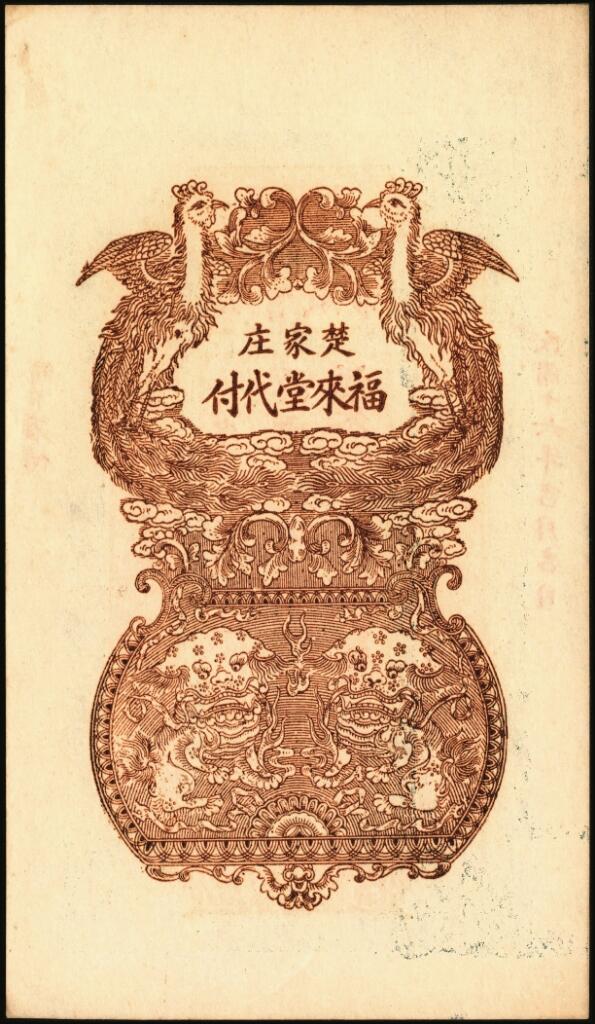 楚家庄
福來堂代付